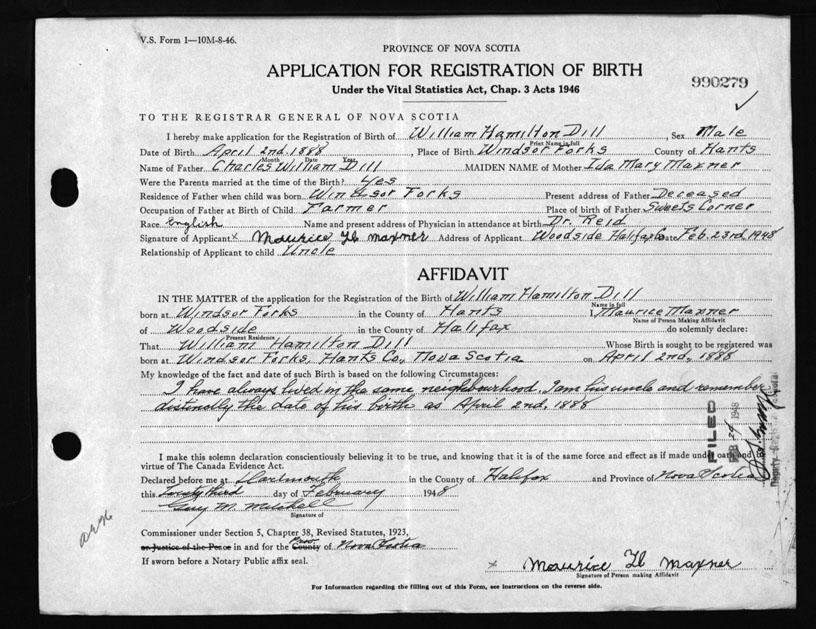 V.S. Form 1—10M-8-46.
PROVINCE OF NOVA SCOTIA
APPLICATION FOR REGISTRATION OF BIRTH
Under the Vital Statistics Act, Chap. 3 Acts 1946
990279
TO THE REGISTRAR GENERAL OF NOVA SCOTIA
I hereby make application for the Registration of Birth of William Hamilton Dill, Sex Male
Print Name in full
Date of Birth April 2nd. 1888, Place of Birth Windsor Forks County of Hants
Month Date Year
Name of Father Charles William Dill MAIDEN NAME of Mother Ida Mary Maxner
Were the Parents married at the time of the Birth? Yes
Residence of Father when child was born Windsor Forks Present address of Father Deceased
Occupation of Father at Birth of Child Farmer Place of birth of Father Sweets Corner
Race English Name and present address of Physician in attendance at birth Dr. Reid
Signature of Applicant x Maurice H Maxner Address of Applicant Woodside Halifax Co Date Feb. 23rd, 1948
Relationship of Applicant to child Uncle
AFFIDAVIT
IN THE MATTER of the application for the Registration of the Birth of William Hamilton Dill
Name in full
born at Windsor Forks in the County of Hants I Maurice Maxner
Name of Person Making Affidavit
of Woodside in the County of Halifax do solemnly declare:
Present Residence
That William Hamilton Dill Whose Birth is sought to be registered was
born at Windsor Forks, Hants Co, Nova Scotia on April 2nd, 1888
My knowledge of the fact and date of such Birth is based on the following Circumstances:
I have always lived in the same neighbourhood. I am his uncle and remember
distinctly the date of his birth as April 2nd, 1888
FILED
FEB 24 1948
I make this solemn declaration conscientiously believing it to be true, and knowing that it is of the same force and effect as if made under oath and by
virtue of The Canada Evidence Act.
Declared before me at Dartmouth in the County of Halifax and Province of Nova Scotia
this twenty third day of February 1948
Guy M.
Signature of
Commissioner under Section 5, Chapter 38, Revised Statutes, 1923,
or Justice of the Peace in and for the County Prov of Nova Scotia
If sworn before a Notary Public affix seal.
x Maurice H Maxner
Signature of Person making Affidavit
For Information regarding the filling out of this Form, see instructions on the reverse side.